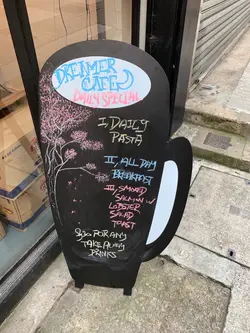 DREAMER
CAFE
DAILY SPECIAL
I DAILY
PASTA
II, ALL DAY
BREAKFAST
III, SMOKED
SALMON W/
LOBSTER
SALAD
TOAST
$20 FOR ANY
TAKE AWAY
DRINKS